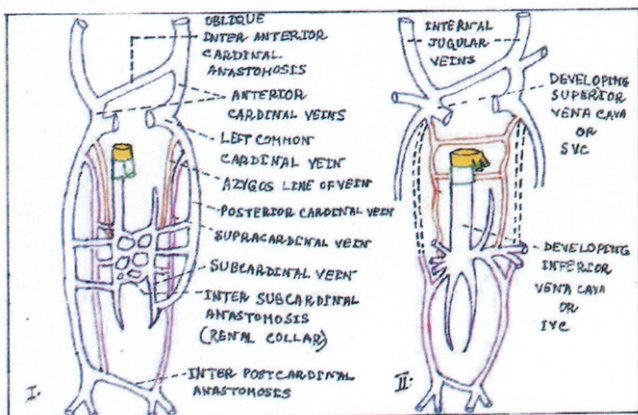 OBLIQUE
INTER ANTERIOR
CARDINAL
ANASTOMOSIS
ANTERIOR
CARDINAL VEINS
LEFT COMMON
CARDINAL VEIN
AZYGOS LINE OF VEIN
POSTERIOR CARDINAL VEIN
SUPRACARDINAL VEIN
SUBCARDINAL VEIN
INTER SUBCARDINAL
ANASTOMOSIS
(RENAL COLLAR)
INTER POSTCARDINAL
ANASTOMOSIS
I.
INTERNAL
JUGULAR
VEINS
DEVELOPING
SUPERIOR
VENA CAVA
OR
SVC
DEVELOPING
INFERIOR
VENA CAVA
OR
IVC
II.